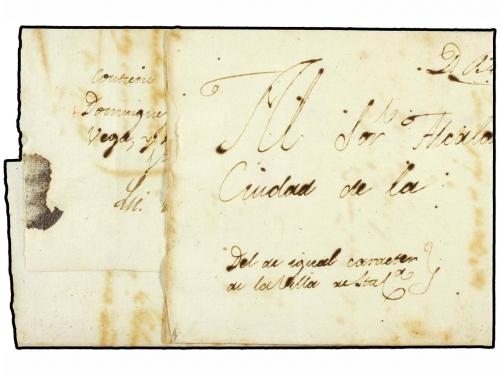 Contiene
Domingue
Vega, y
Al Sor. Alcala
Ciudad de la
Del de igual caracter
de la Villa de Sta